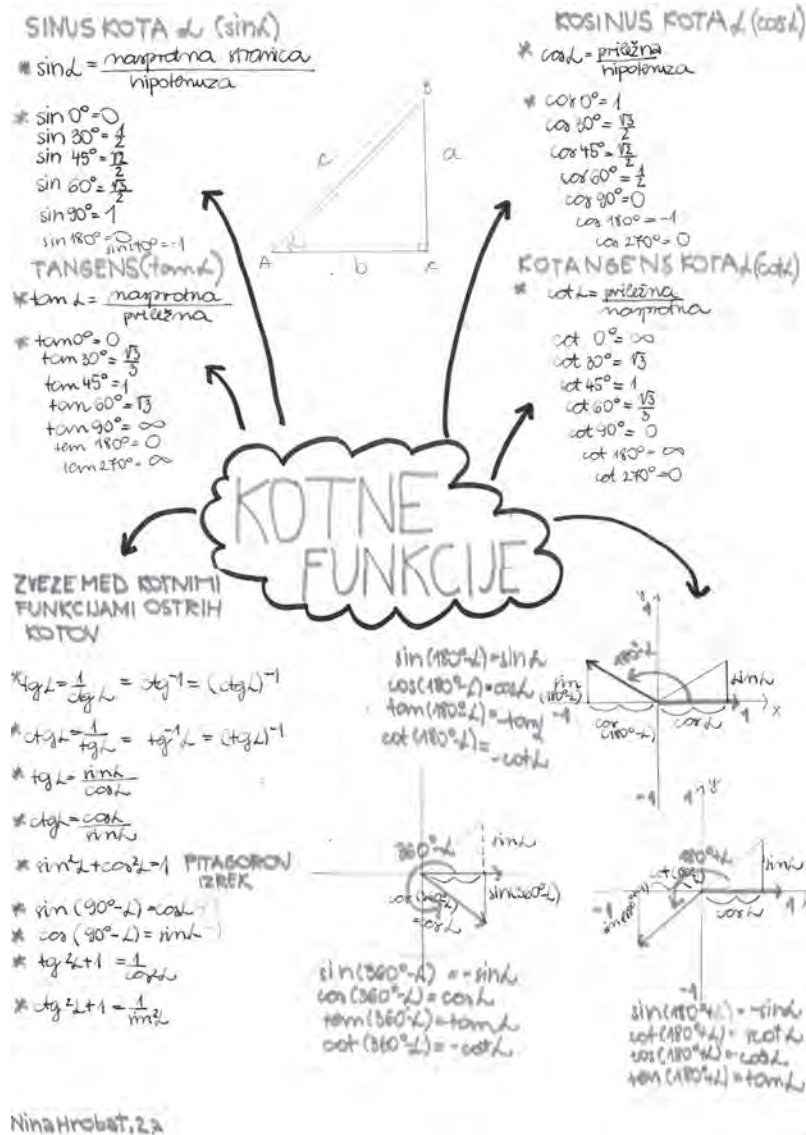 SINUS KOTA α (sinα)
* sinα = nasprotna stranica / hipotenuza
* sin 0° = 0
sin 30° = 1/2
sin 45° = √2/2
sin 60° = √3/2
sin 90° = 1
sin 180° = 0
sin 270° = -1
KOSINUS KOTA α (cosα)
* cosα = priležna / hipotenuza
* cos 0° = 1
cos 30° = √3/2
cos 45° = √2/2
cos 60° = 1/2
cos 90° = 0
cos 180° = -1
cos 270° = 0
B
c
a
α
A
b
c
TANGENS (tanα)
* tan α = nasprotna / priležna
* tan 0° = 0
tan 30° = √3/3
tan 45° = 1
tan 60° = √3
tan 90° = ∞
tan 180° = 0
tan 270° = ∞
KOTANGENS KOTA α (cotα)
* cotα = priležna / nasprotna
cot 0° = ∞
cot 30° = √3
cot 45° = 1
cot 60° = √3/3
cot 90° = 0
cot 180° = ∞
cot 270° = 0
KOTNE
FUNKCIJE
ZVEZE MED KOTNIMI
FUNKCIJAMI OSTRIH
KOTOV
* tgα = 1/ctgα = ctg⁻¹ = (ctgα)⁻¹
* ctgα = 1/tgα = tg⁻¹α = (tgα)⁻¹
* tgα = sinα/cosα
* ctgα = cosα/sinα
* sin²α + cos²α = 1 PITAGOROV
IZREK
* sin (90°-α) = cosα
* cos (90°-α) = sinα
* tg²α + 1 = 1/cos²α
* ctg²α + 1 = 1/sin²α
sin(180°-α) = sinα
cos(180°-α) = cosα
tan(180°-α) = -tanα
cot(180°-α) =
-cotα
1 y
180°-α
sin
(180°-α)
sinα
-1
cos
(180°-α)
cosα
1 x
-1
360°-α
sinα
cos(360°-α)
= cosα
sin(360°-α)
sin(360°-α) = -sinα
cos(360°-α) = cosα
tan(360°-α) = tanα
cot(360°-α) = -cotα
1 y
180°+α
sinα
-1
sin(180°+α)
cosα
1
-1
sin(180°+α) = -sinα
cot(180°+α) = cotα
cos(180°+α) = -cosα
tan(180°+α) = tanα
Nina Hrobat, 2.a